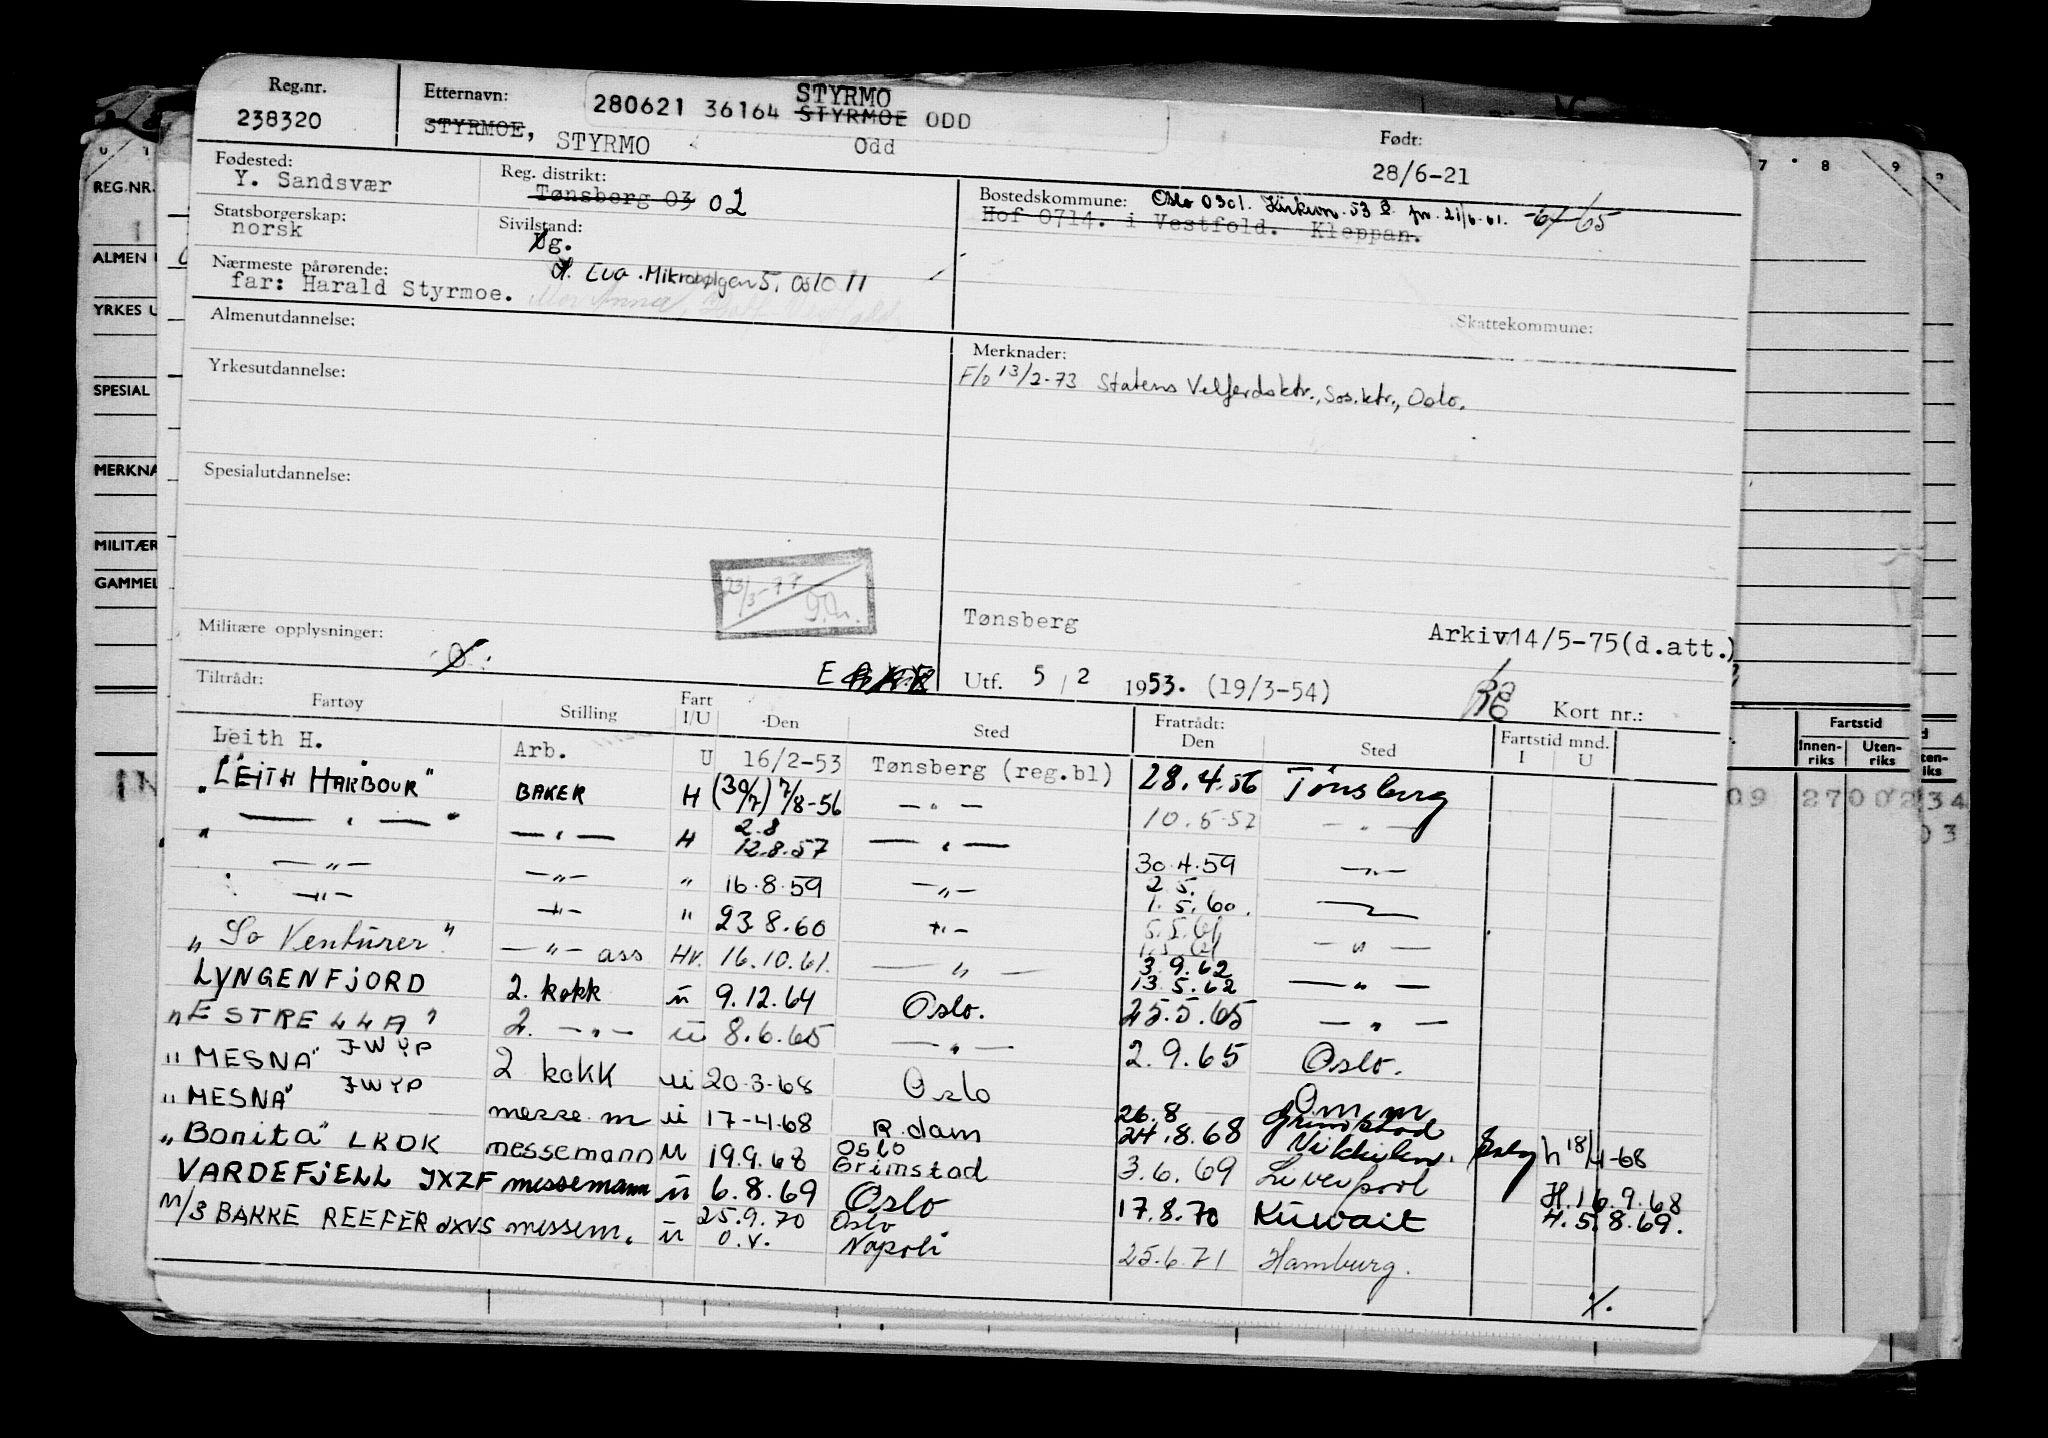 Reg.nr.
238320
Etternavn:
280621 36164 STYRMOE ODD
STYRMO
STYRMOE, STYRMO Odd
Født:
28/6-21
Fødested:
Y. Sandsvær
Reg. distrikt:
Tønsberg 03 02
Bostedskommune: Oslo 0301. Kirkevn. 53 B. pr. 21/6-61. -67/65
Hof 0714. i Vestfold. Kleppan.
Statsborgerskap:
norsk
Sivilstand:
g.
Nærmeste pårørende:
far: Harald Styrmoe.
H. Eva. Mikrobølgen 5, Oslo 11
Mor Anna, Hof Vestfold
Skattekommune:
Almenutdannelse:
Yrkesutdannelse:
Merknader:
F/o 13/2-73 Statens Velferdsktr., Sos.ktr., Oslo.
Spesialutdannelse:
23/5-77
Militære opplysninger:
Tønsberg
Arkiv 14/5-75(d.att.)
Utf. 5 / 2 1953. (19/3-54)
Kort nr.:
Tiltrådt:
Fartøy Stilling Fart I/U Den Sted Fratrådt: Den Sted Fartstid mnd. I U
Leith H. Arb. U 16/2-53 Tønsberg (reg.bl) 28.4.56 Tønsberg
"LEITH HARBOUR" BAKER H (30/7) 7/8-56 — " — 10.5.57 — " —
" — " — " — " — H 2.8 12.8.57 — " — 30.4.59 — " —
— " — — " — " 16.8.59 — " — 2.5. 1.5.60.
— " — — " — " 23.8.60 — " — 5.5.61 1.5.61 — " —
"So Venturer" — " — ass Hv. 16.10.61. — " — 3.9.62 13.5.62 — " —
LYNGENFJORD 2. kokk ü 9.12.64 Oslo. 25.5.65 — " —
"ESTRELLA" 2. — " — ü 8.6.65 — " — 2.9.65 Oslo.
"MESNA" JWYP 2 kokk ü 20.3.68 Oslo
"MESNA" JWYP messe.m ü 17-4.68 R.dam 26.8 24.8.68 Grimstad Vikkilen. h 18/4-68
"Bonita" LKDK messemann U 19.9.68 Oslo Grimstad 3.6.69 Liverpool H.16.9.68
VARDEFJELL JXZF messemann ü 6.8.69 Oslo 17.8.70 Kuwait H.5.8.69.
M/S BAKKE REEFER JXVS messem. ü 25.9.70 o.v. Oslo Napoli 25.6.71 Hamburg.
%.
REG.NR.
ALMEN
YRKES U
SPESIAL
MERKNA
MILITÆR
GAMMEL
7 8 9
Fartstid
Innenriks Utenriks
09 2700 2 34
03